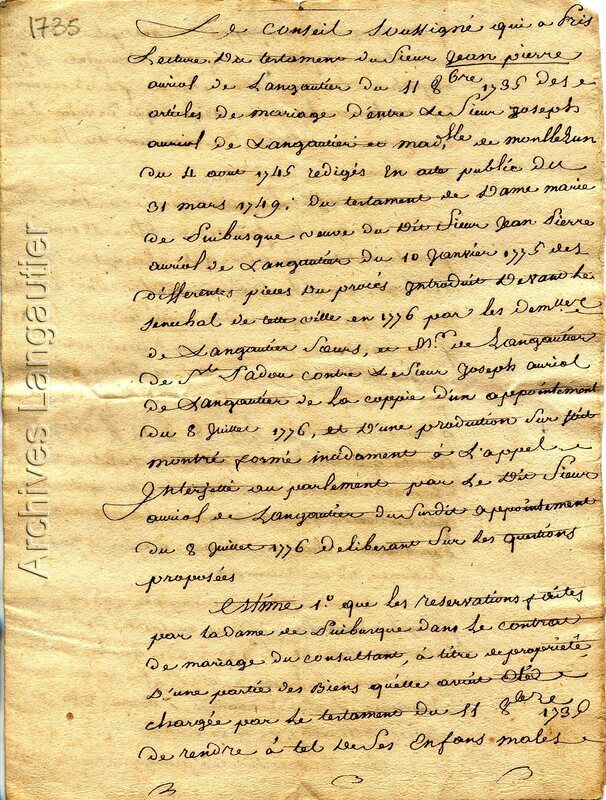 1735
Le conseil soussigné qui a pris
Lecture Du testament du Sieur Jean pierre
auriol de Langautier du 11 8bre 1735 des
articles de mariage d'entre Le Sieur Joseph
auriol de Langautier et mad.elle de montlezun
du 4 aout 1745 redigés En acte public du
31 mars 1749; du testament de Dame marie
de Puibusque veuve du Dit Sieur Jean Pierre
auriol de Langautier du 10 Janvier 1775 des
differentes pieces Du procés Introduit Devant Le
senechal de cette ville en 1776 par les dem.lles
de Langautier Sœurs, et Mr. de Langautier
de Ste Padou contre Le Sieur Joseph auriol
de Langautier de la coppie d'un appointement
du 8 Juillet 1776, et D'une production sur
montré formé incidament à L'appel
Interjetté au parlement par Le Dit Sieur
auriol de Langautier du susdit appointement
du 8 Juillet 1776 deliberant sur les questions
proposées
Estime 1.o que les reservations faites
par la dame de Puibusque dans le contrat
de mariage du consultant, à titre de propriété
D'une partie des Biens qu'elle avoit été
chargée par Le testament du 11 8bre 1735
de rendre à tel de ses Enfans males
Archives Langautier